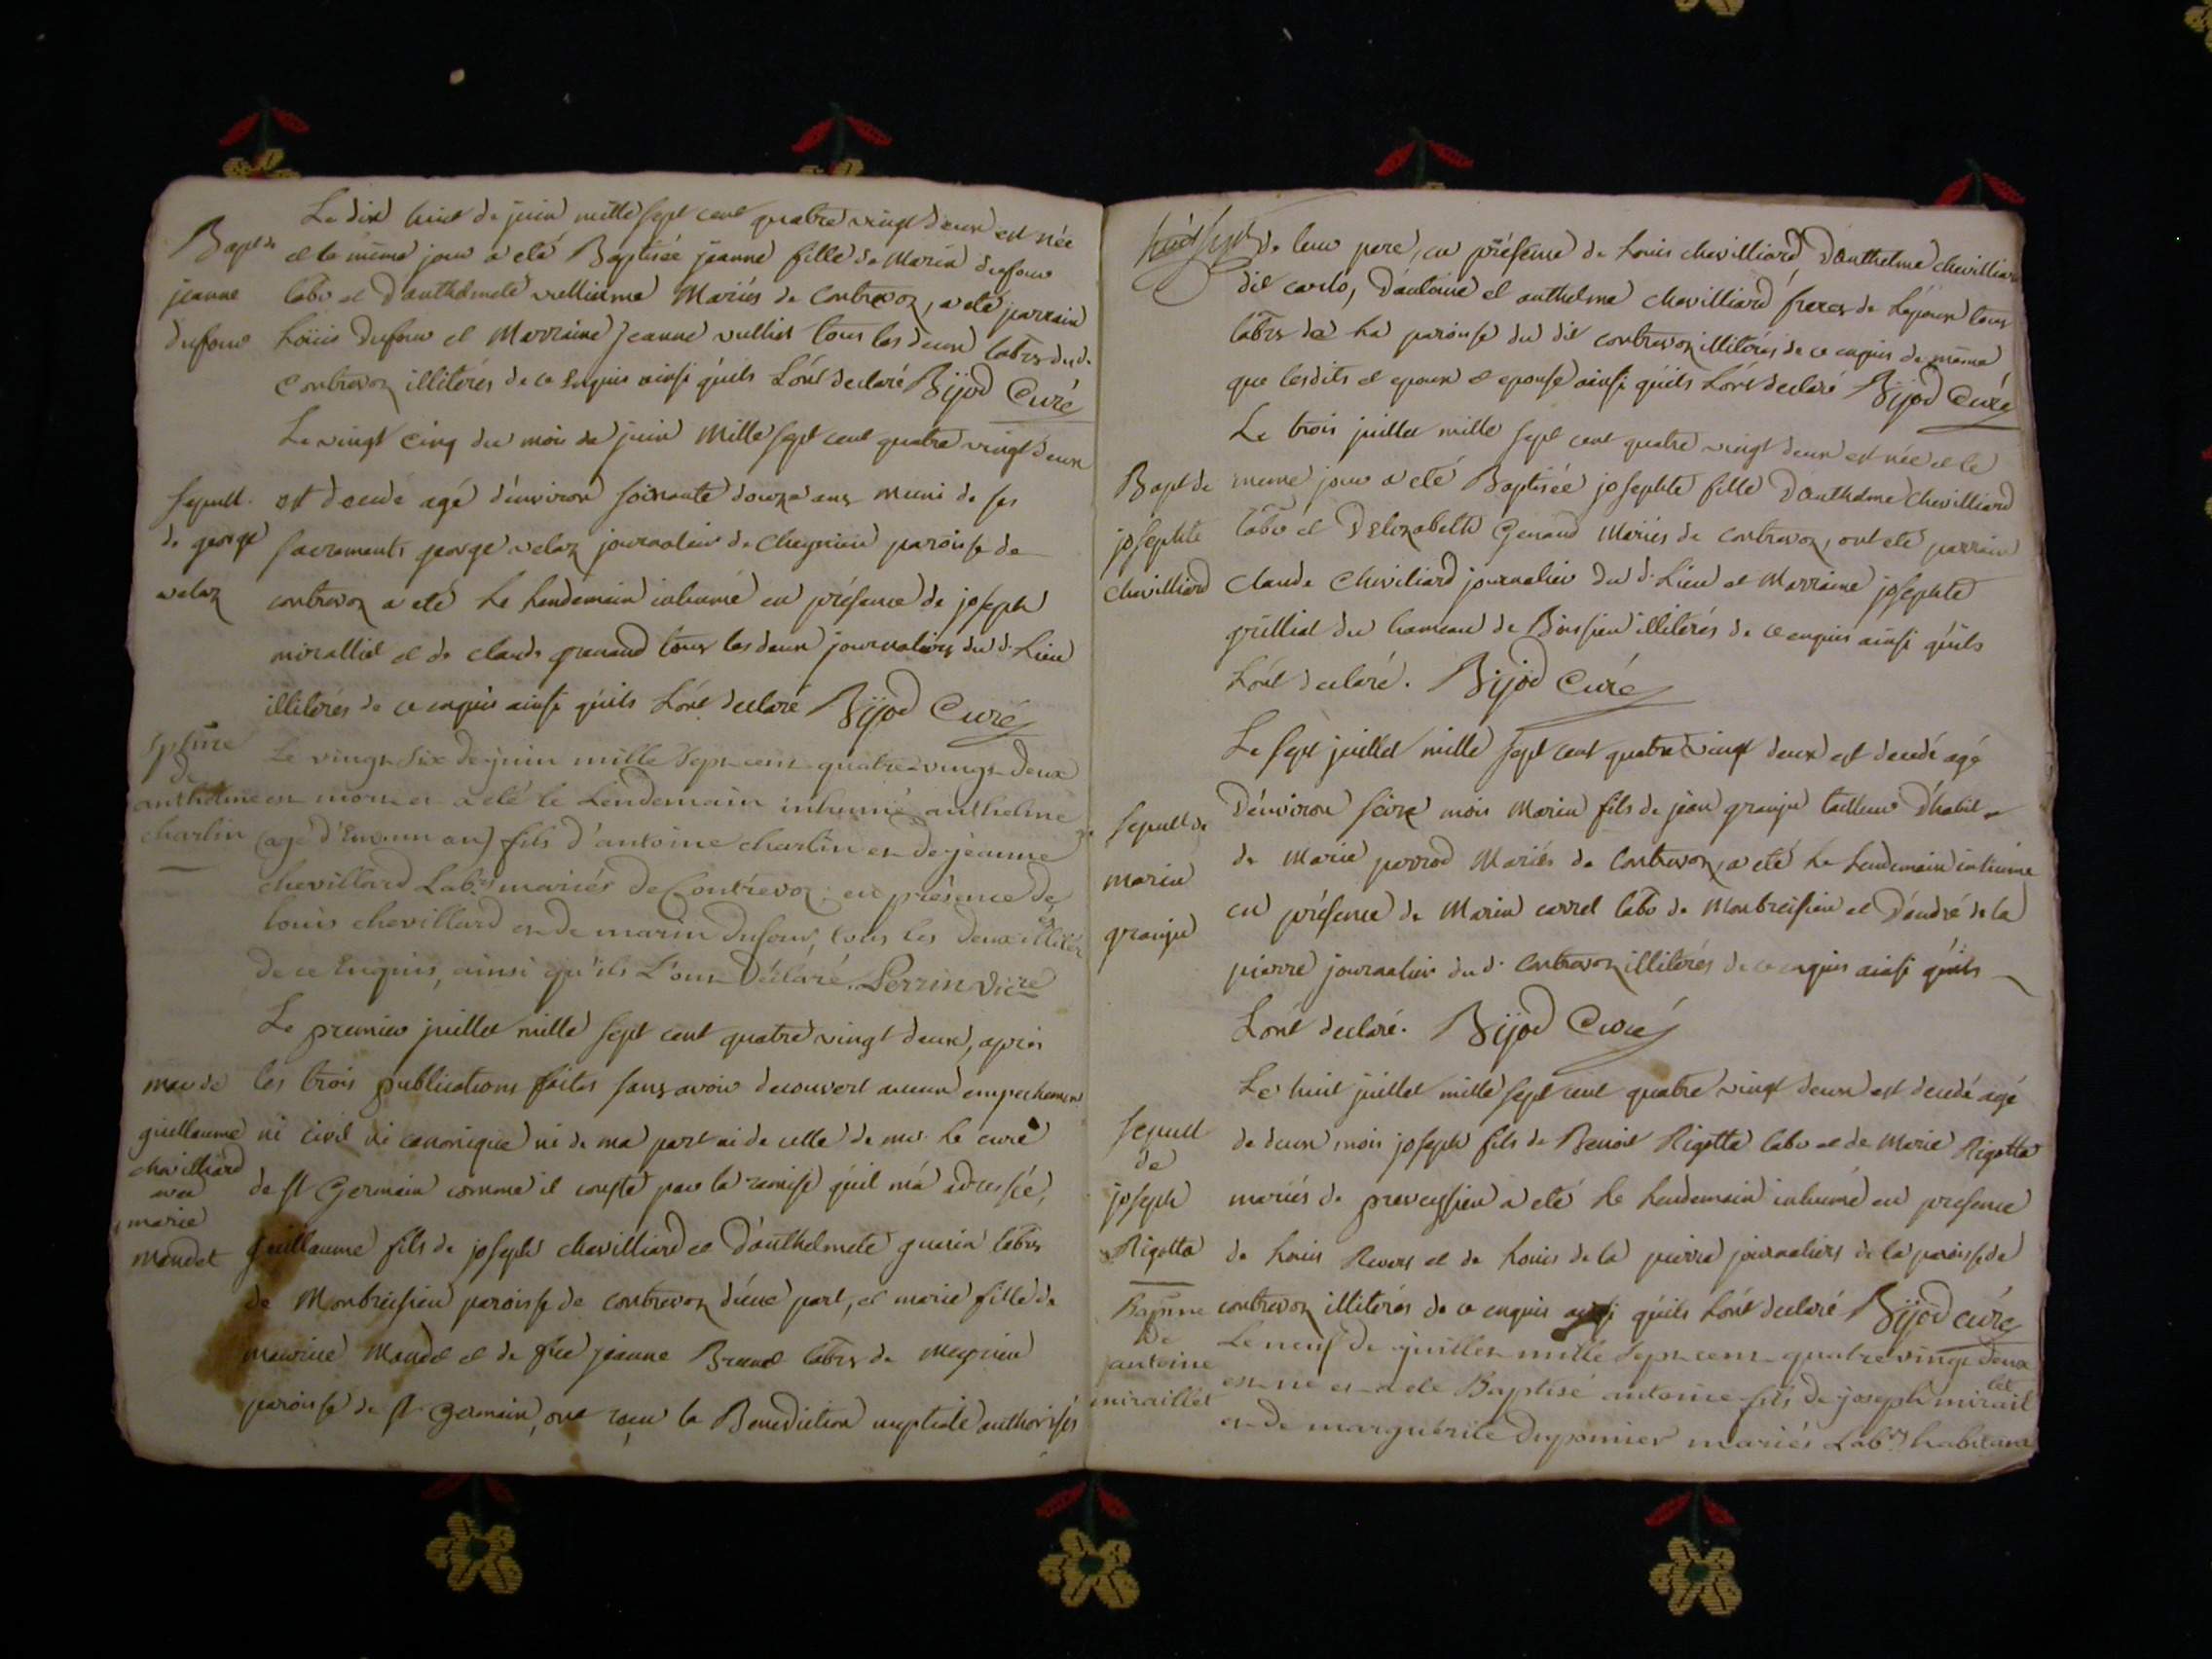 Le dix huit de juin mille sept cent quatre vingt deux est née
Bapt de
et le même jour a eté Baptisée jeanne fille de Marin dufour
jeanne
labr et d'anthelmete vullierme Mariés de Contrevoz, a eté parrain
dufour
Loüis Dufour et Marraine Jeanne vulliet tous les deux labrs du d.
Contrevoz illiterés de ce Enquis ainsi quils L'ont declaré Bijod Curé
Le vingt Cinq du mois de juin Mille sept cent quatre vingt deux
Sepult.
est decedé agé d'environ soixante douze ans muni de ses
de george
sacrements george velaz journalier de Cheygnieu paroisse de
velaz
contrevoz a eté Le Lendemain inhumé en présence de joseph
miralliet et de claude genand tous les deux journaliers du d. Lieu
illiterés de ce enquis ainsi quils L'ont declaré Bijod Curé
Spture
Le vingt-six de juin mille Sept-cent-quatre-vingt-Deux
De
anthelme
est mort et a eté le Lendemain inhumé anthelme
charlin
(agé d'Environ un an) fils d'antoine charlin et de jeanne
chevillard Labrs mariés De Contrevoz; en présence de
louis chevillard et de marin Dufour, tous les deux illiterés
De ce Enquis, ainsi qu'ils L'ont Déclaré. Perrin Vicre
Le premier juillet mille sept cent quatre vingt deux, après
mar de
les trois publications faites sans avoir decouvert aucun empechement
guillaume
ni civil ni canonique ni de ma part ni de celle de mr. Le curé
chevilliard
avec
de st Germain comme il conste par la remise quil m'a adressée,
marie
mandet
guillaume fils de joseph chevilliard et d'anthelmete guerin labrs
de Montbreisieu paroisse de contrevoz d'une part, et marie fille de
maurice Mandet et de feue jeanne Brunet labrs de meyrieu
paroisse de st Germain, ont reçu la Benediction nuptiale authorisés
de leur pere, en présence de Louis chevilliard, D'anthelme chevilliard
dit carlo, D'antoine et anthelme chevilliard freres de L'epoux tous
labrs de La paroisse du dit contrevoz illiterés de ce enquis de même
que lesdits et epoux et epouse ainsi quils L'ont declaré Bijod Curé
Le trois juillet mille sept cent quatre vingt deux est née et le
Bapt de
meme jour a eté Baptisée josephte fille D'anthelme Chevilliard
josephte
labr et D'Elizabelth Genand Mariés de contrevoz, ont eté parrain
chevilliard
Claude Cheviliard journalier du d. Lieu et Marraine josephte
grilliet du hameau de Boissieu illiterés de ce enquis ainsi quils
L'ont declaré. Bijod Curé
Le sept juillet mille sept cent quatre vingt deux est decedé agé
Sepult de
D'environ seize mois Marin fils de jean granju tailleur d'habit et
marin
de Marie perrod Mariés de Contrevoz, a eté Le Lendemain inhumé
granju
en présence de Marin carrel labr de Montbreisieu et D'andré de la
pierre journalier du d. Contrevoz illiterés de ce enquis ainsi quils
L'ont declaré. Bijod Curé
Le huit juillet mille sept cent quatre vingt deux est decedé agé
Sepult
de deux mois joseph fils de Benoit Rigotta labr et de Marie Rigotta
de
joseph
mariés de preveyssieu a eté Le Lendemain inhumé en presence
Rigotta
de Louis Revers et de Louis de la pierre journaliers de la paroisse de
contrevoz illiterés de ce enquis ainsi quils L'ont declaré Bijod curé
Baptme
De
Le neuf De juillet mille Sept-cent-quatre vingt Deux
antoine
est-né et a eté Baptisé antoine fils de joseph miraillet
miraillet
et-de marguerite Duponier mariés Labrs habitant